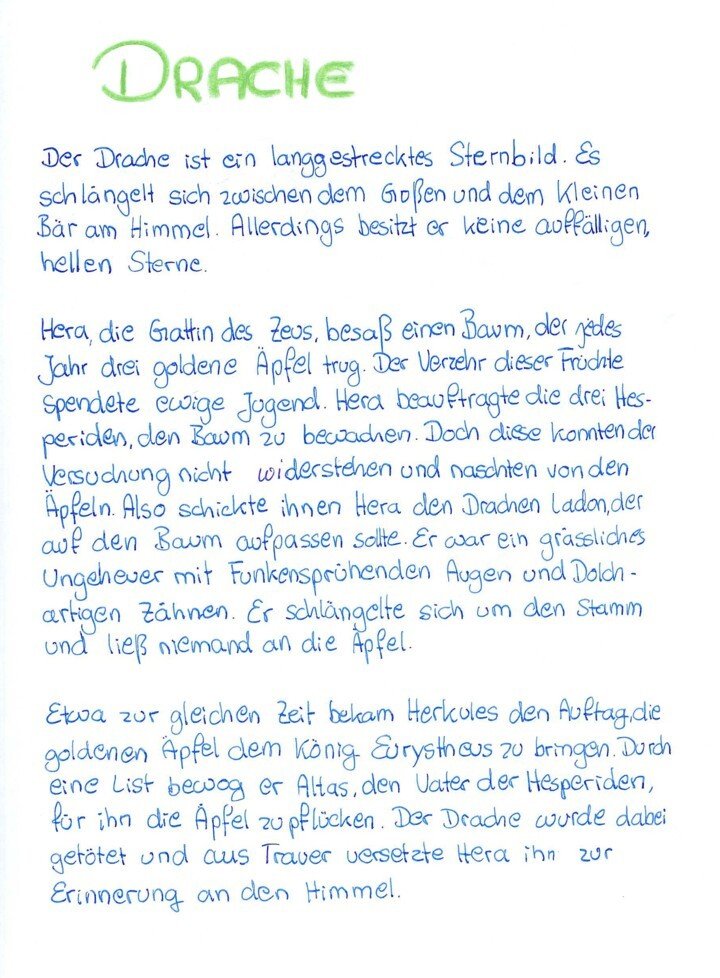 DRACHE
Der Drache ist ein langgestrecktes Sternbild. Es
schlängelt sich zwischen dem Goßen und dem Kleinen
Bär am Himmel. Allerdings besitzt er keine auffälligen,
hellen Sterne.
Hera, die Gattin des Zeus, besaß einen Baum, der jedes
Jahr drei goldene Äpfel trug. Der Verzehr dieser Früchte
spendete ewige Jugend. Hera beauftragte die drei Hes-
periden, den Baum zu bewachen. Doch diese konnten der
Versuchung nicht widerstehen und naschten von den
Äpfeln. Also schickte ihnen Hera den Drachen Ladon, der
auf den Baum aufpassen sollte. Er war ein grässliches
Ungeheuer mit Funkensprühenden Augen und Dolch-
artigen Zähnen. Er schlängelte sich um den Stamm
und ließ niemand an die Äpfel.
Etwa zur gleichen Zeit bekam Herkules den Auftag, die
goldenen Äpfel dem König Eurystheus zu bringen. Durch
eine List bewog er Altas, den Vater der Hesperiden,
für ihn die Äpfel zu pflücken. Der Drache wurde dabei
getötet und aus Trauer versetzte Hera ihn zur
Erinnerung an den Himmel.